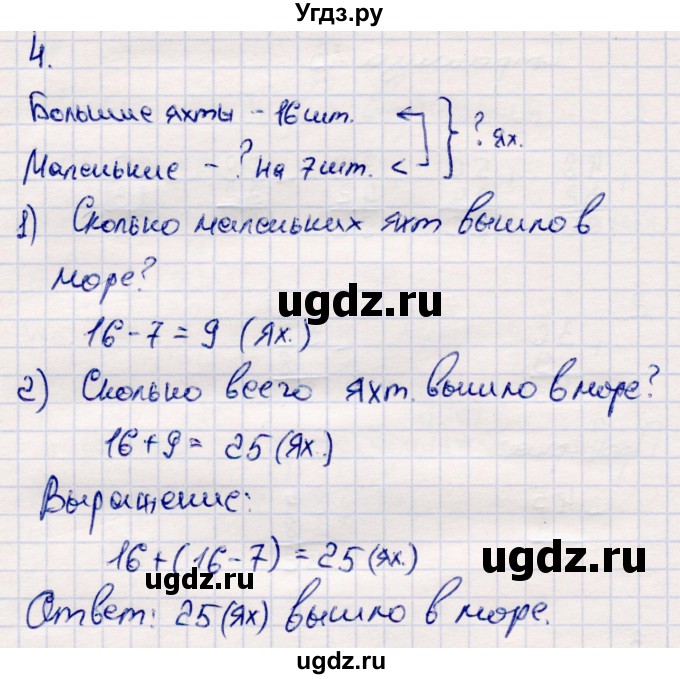 Угдз.ру
4.
Большие яхты - 16 шт.
? ях.
Маленькие - ? на 7 шт. <
1) Сколько маленьких яхт вышло в
море?
ugdz.ru
16 - 7 = 9 (ях.)
2) Сколько всего яхт. вышло в море?
16 + 9 = 25 (ях.)
ugdz.ru
Выражение:
16 + (16 - 7) = 25 (ях.)
ugdz.ru
ugdz.ru
Ответ: 25 (ях) вышло в море.
ugdz.ru